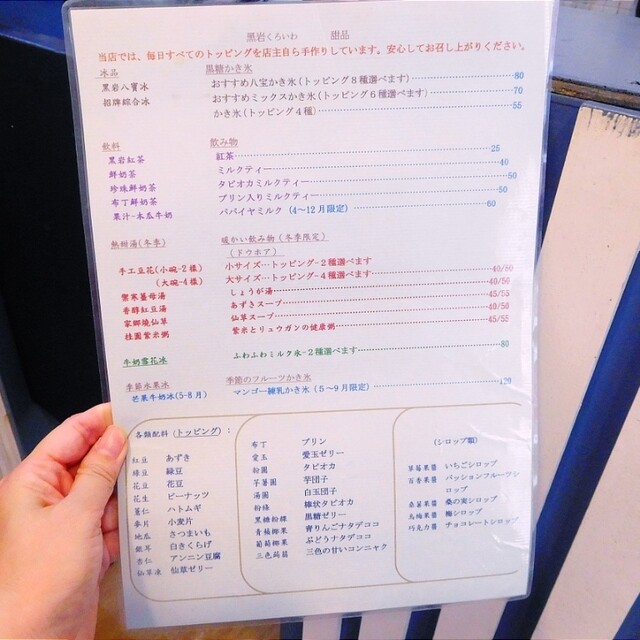 黒岩くろいわ 甜品
当店では、毎日すべてのトッピングを店主自ら手作りしています。安心してお召し上がりください。
冰品 黒糖かき氷
黑岩八寶冰 おすすめ八宝かき氷(トッピング8種選べます) 80
招牌綜合冰 おすすめミックスかき氷(トッピング6種選べます) 70
かき氷(トッピング4種) 55
飲料 飲み物
黑岩紅茶 紅茶 25
鮮奶茶 ミルクティー 40
珍珠鮮奶茶 タピオカミルクティー 50
布丁鮮奶茶 プリン入りミルクティー 50
果汁-木瓜牛奶 パパイヤミルク(4～12月限定) 60
熱甜湯(冬季) 暖かい飲み物(冬季限定)
(ドウホア)
手工豆花(小碗-2樣) 小サイズ-トッピング-2種選べます 40/50
(大碗-4樣) 大サイズ-トッピング-4種選べます 40/50
禦寒薑母湯 しょうが湯 40/50
香醇紅豆湯 あずきスープ 45/55
家鄉燒仙草 仙草スープ 40/50
桂圓紫米粥 紫米とリュウガンの健康粥 45/55
牛奶雪花冰 ふわふわミルク氷-2種選べます 80
季節水果冰 季節のフルーツかき氷
芒果牛奶冰(5-8月) マンゴー練乳かき氷(5～9月限定) 120
各類配料(トッピング):
紅豆 あずき
綠豆 緑豆
花豆 花豆
花生 ピーナッツ
薏仁 ハトムギ
麥片 小麦片
地瓜 さつまいも
銀耳 白きくらげ
杏仁 アンニン豆腐
仙草凍 仙草ゼリー
布丁 プリン
愛玉 愛玉ゼリー
粉圓 タピオカ
芋薯圓 芋団子
湯圓 白玉団子
粉條 棒状タピオカ
黑糖粉粿 黒糖ゼリー
青蘋椰果 青りんごナタデココ
葡萄椰果 ぶどうナタデココ
三色蒟蒻 三色の甘いコンニャク
(シロップ類)
草莓果醬 いちごシロップ
百香果醬 パッションフルーツシ
ロップ
桑葚果醬 桑の実シロップ
烏梅果醬 梅シロップ
巧克力醬 チョコレートシロップ